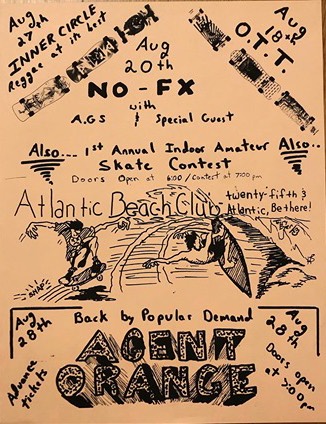 Aug 27th
INNER CIRCLE
Reggae at its best
Aug 20th
Aug 18th
O.T.T.
NO-FX
with
A.G.S & Special Guest
Also... 1st Annual Indoor Amateur Also..
Skate Contest
Doors Open at 6:00 / Contest at 7:00 pm
Atlantic Beach Club twenty-fifth &
Atlantic, Be there!
SNAP!
Aug 28th
Back by Popular Demand
Aug 28th
AGENT
ORANGE
Advance tickets
Doors open at 7:00pm